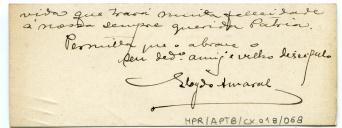 vida que trará muita felicidade
á nossa sempre querida Patria.
Permitta que o abrace o
seu ded.º amigo e velho discipulo
Amaral
HPR/APTB/CX.018/068